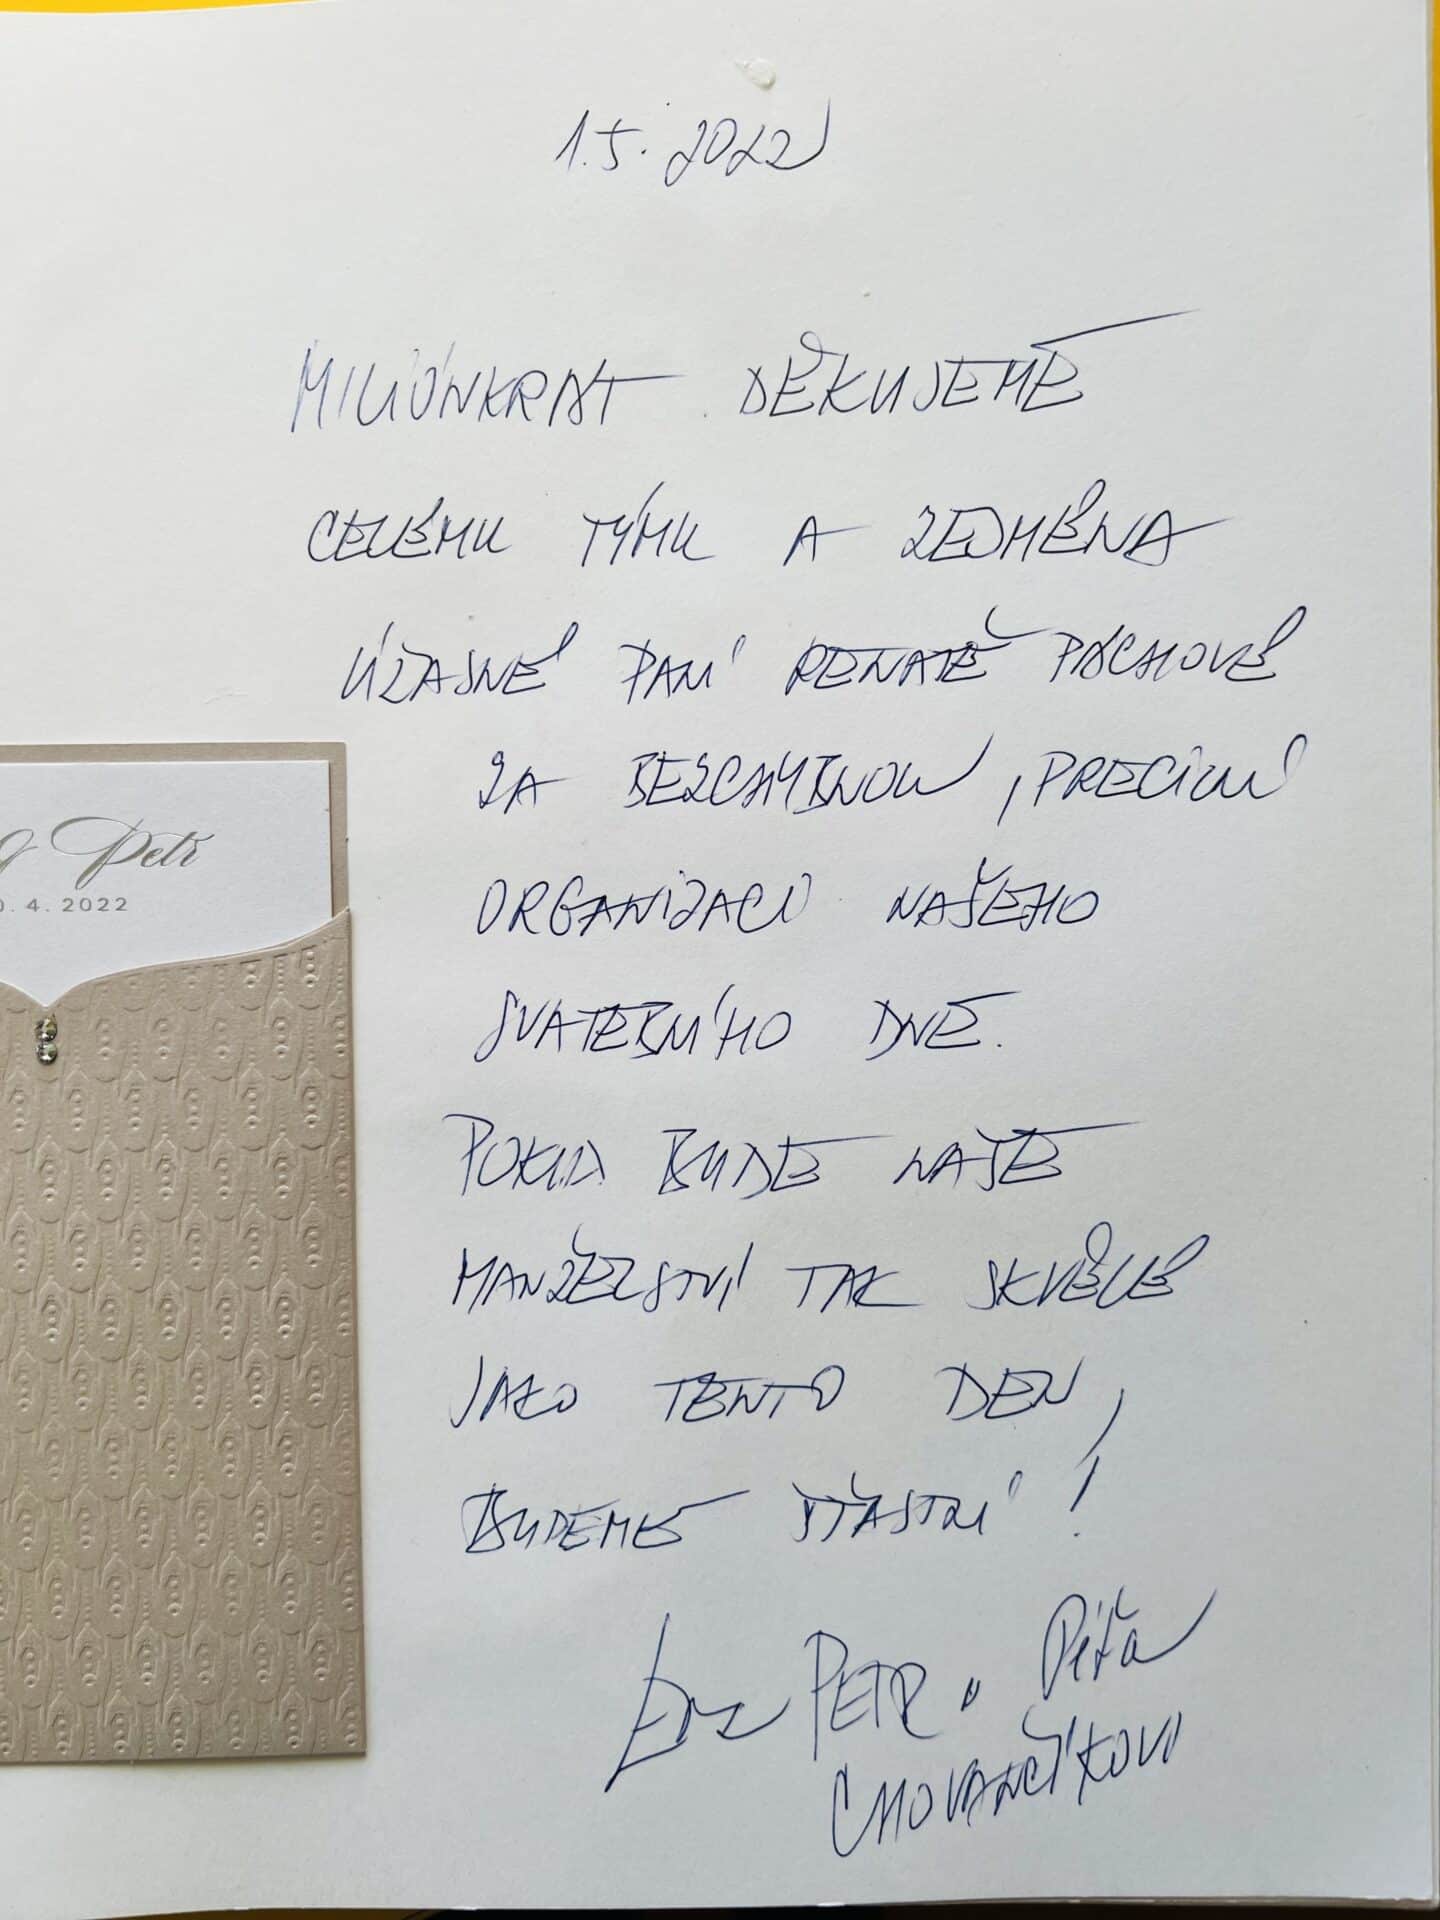 1.5.2022
MILIÓNKRÁT DĚKUJEME
CELÉMU TÝMU A ZEJMÉNA
ÚŽASNÉ PANÍ RENATĚ PÁCHOVÉ
ZA BEZCHYBNOU, PRECIZNÍ
ORGANIZACI NAŠEHO
SVATEBNÍHO DNE.
POKUD BUDE NAŠE
MANŽELSTVÍ TAK SKVĚLÉ
JAKO TENTO DEN,
BUDEME ŠŤASTNÍ!
PETR a Píťa
CHOVANČÍKOVI
Petr
0. 4. 2022